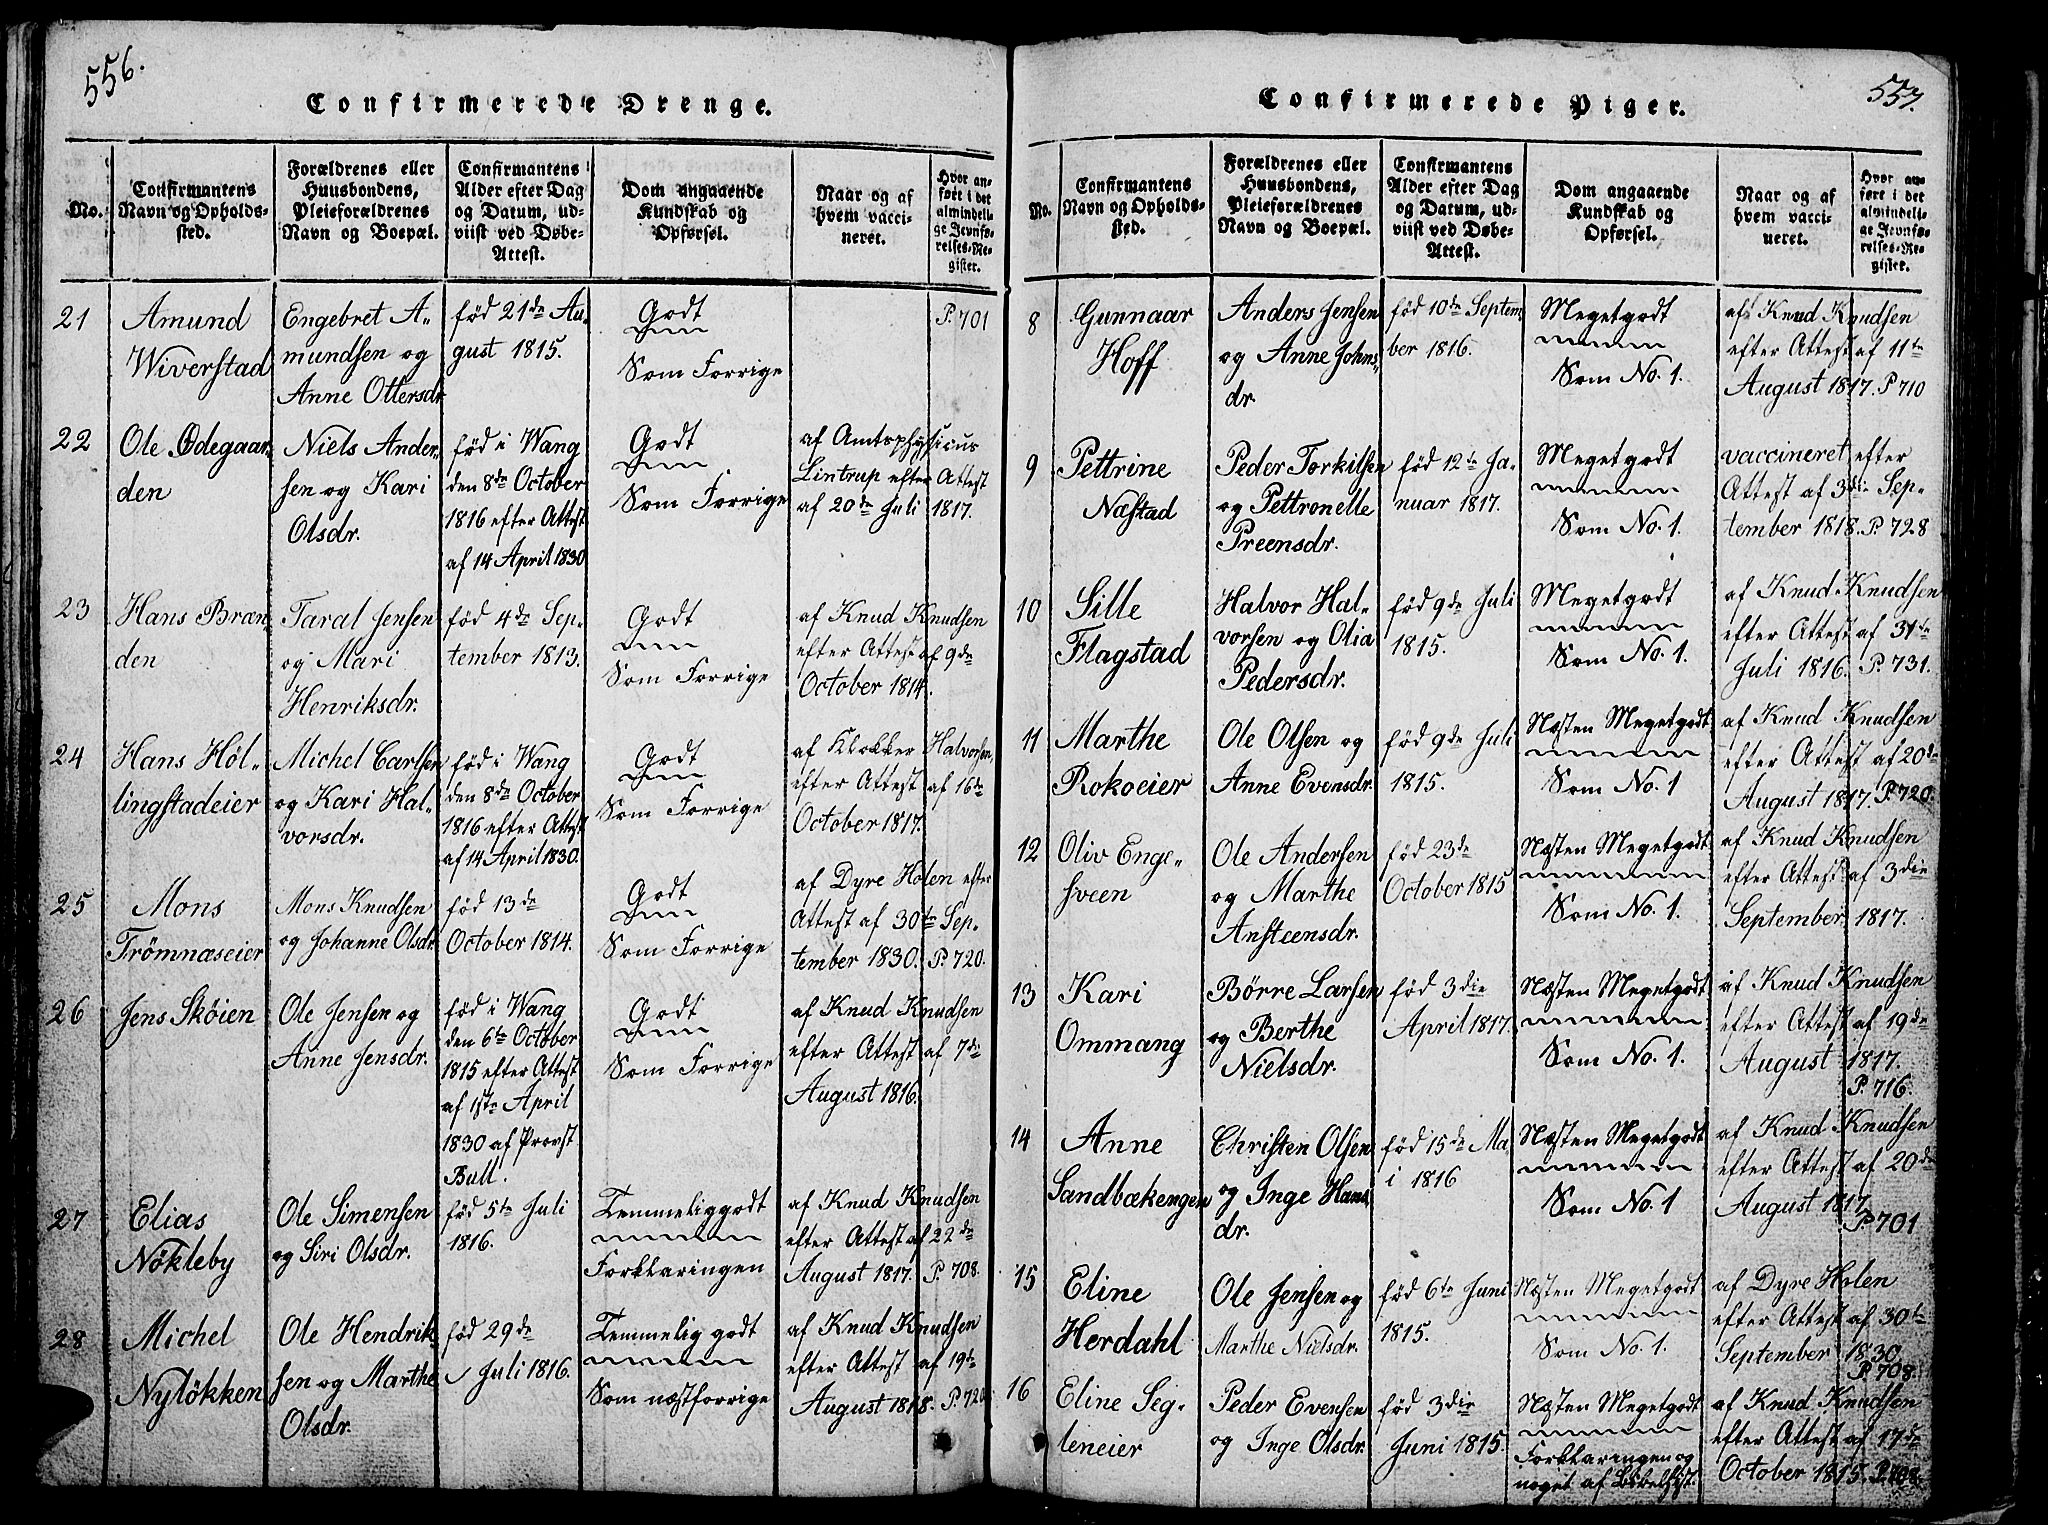 556.
Confirmerede Drenge.
No.
Confirmantens
Navn og Opholds-
sted.
Forældrenes eller
Huusbondens,
Pleieforældrenes
Navn og Boepæl.
Confirmantens
Alder efter Dag
og Datum, ud-
viist ved Døbe-
Attest.
Dom angaaende
Kundskab og
Opførsel.
Naar og af
hvem vacci-
neret.
Hvor an-
ført i det
almindeli-
ge Jevnfø-
relses-Re-
gister.
21
Amund
Wiverstad
Engebret A-
mundsen og
Anne Ottersdr
fød 21de Au-
gust 1815.
Godt
Som Forrige
P. 701
22
Ole Ødegaar-
den
Niels Ander-
sen og Kari
Olsdr.
fød i Wang
den 8de October
1816 efter Attest
af 14 April 1830
Godt
Som Forrige
af Amtsphysicus
Lintrup efter Attest
af 20de Juli 1817.
23
Hans Bræn-
den
Taral Jensen
og Mari
Henriksdr.
fød 4de Sep-
tember 1813.
Godt
Som Forrige
af Knud Knudsen
efter Attest af 9de
October 1814.
24
Hans Høl-
lingstadeier
Michel Carlsen
og Kari Hal-
vorsdr.
fød i Wang
den 8de October
1816 efter Attest
af 14 April 1830.
Godt
Som Forrige
af Klokker Halvorsen,
efter Attest af 16de
October 1817.
25
Mons
Trömnæseier
Mons Knudsen
og Johanne Olsdr.
fød 13de
October 1814.
Godt
Som Forrige
af Dyre Holen efter
Attest af 30te Sep-
tember 1830. P. 720.
26
Jens Skøien
Ole Jensen og
Anne Jensdr.
fød i Wang
den 6te October
1815 efter Attest
af 1ste April
1830 af Provst
Bull.
Godt
Som Forrige
af Knud Knudsen
efter Attest af 7de
August 1816.
27
Elias
Nökleby
Ole Simensen
og Siri Olsdr.
fød 5te Juli
1816.
Temmeliggodt
Forklaringen
af Knud Knudsen
efter Attest af 22de
August 1817. P. 708.
28
Michel
Nylökken
Ole Hendrik-
sen og Marthe
Olsdr.
fød 29de
Juli 1816.
Temmelig godt
Som næstforrige
af Knud Knudsen
efter Attest af 19de
August 1818. P. 720
557.
Confirmerede Piger.
No.
Confirmantens
Navn og Opholds-
sted.
Forældrenes eller
Huusbondens,
Pleieforældrenes
Navn og Boepæl.
Confirmantens
Alder efter Dag
og Datum, ud-
viist ved Døbe-
Attest.
Dom angaaende
Kundskab og
Opførsel.
Naar og af
hvem vacci-
neret.
Hvor an-
ført i det
almindeli-
ge Jevnfø-
relses-Re-
gister.
8
Gunnaar
Hoff
Anders Jensen
og Anne Johns-
dr.
fød 10de Septem-
ber 1816.
Megetgodt
Som No. 1.
af Knud Knudsen
efter Attest af 11te
August 1817. P 710
9
Pettrine
Næstad
Peder Torkilsen
og Pettronelle
Preensdr.
fød 12te Ja-
nuar 1817.
Megetgodt
Som No. 1.
vaccineret efter
Attest af 3die Sep-
tember 1818. P. 728
10
Sille
Flagstad
Halvor Hal-
vorsen og Olia
Pedersdr.
fød 9de Juli
1815.
Megetgodt
Som No. 1.
af Knud Knudsen
efter Attest af 31de
Juli 1816. P. 731.
11
Marthe
Rokoeier
Ole Olsen og
Anne Evensdr.
fød 9de Juli
1815.
Næsten Megetgodt
Som No. 1
af Knud Knudsen
efter Attest af 20de
August 1817. P. 720.
12
Oliv Enge-
sveen
Ole Andersen
og Marthe
Ansteensdr.
fød 23de
October 1815
Næsten Megetgodt
Som No. 1.
af Knud Knudsen
efter Attest af 3die
September 1817.
13
Kari
Ommang
Börre Larsen
og Berthe
Nielsdr.
fød 3die
April 1817.
Næsten Megetgodt
Som No. 1.
af Knud Knudsen
efter Attest af 19de
August 1817.
P. 716.
14
Anne
Sandbækengen
Christen Olsen
og Inge Hans-
dr.
fød 15de Ma-
i 1816
Næsten Megetgodt
Som No. 1
af Knud Knudsen
efter Attest af 20de
August 1817
P. 701
15
Eline
Herdahl
Ole Jensen og
Marthe Nielsdr.
fød 6te Juni
1815.
Næsten Megetgodt
Som No. 1.
af Dyre Holen
efter Attest af 30te
September 1830
P. 708.
16
Eline Seg-
leneier
Peder Evensen
og Inge Olsdr.
fød 3die
Juni 1815.
Næsten Megetgodt
Forklaringen og
noget af Bibelhist.
af Knud Knudsen
efter Attest af 17de
October 1815.